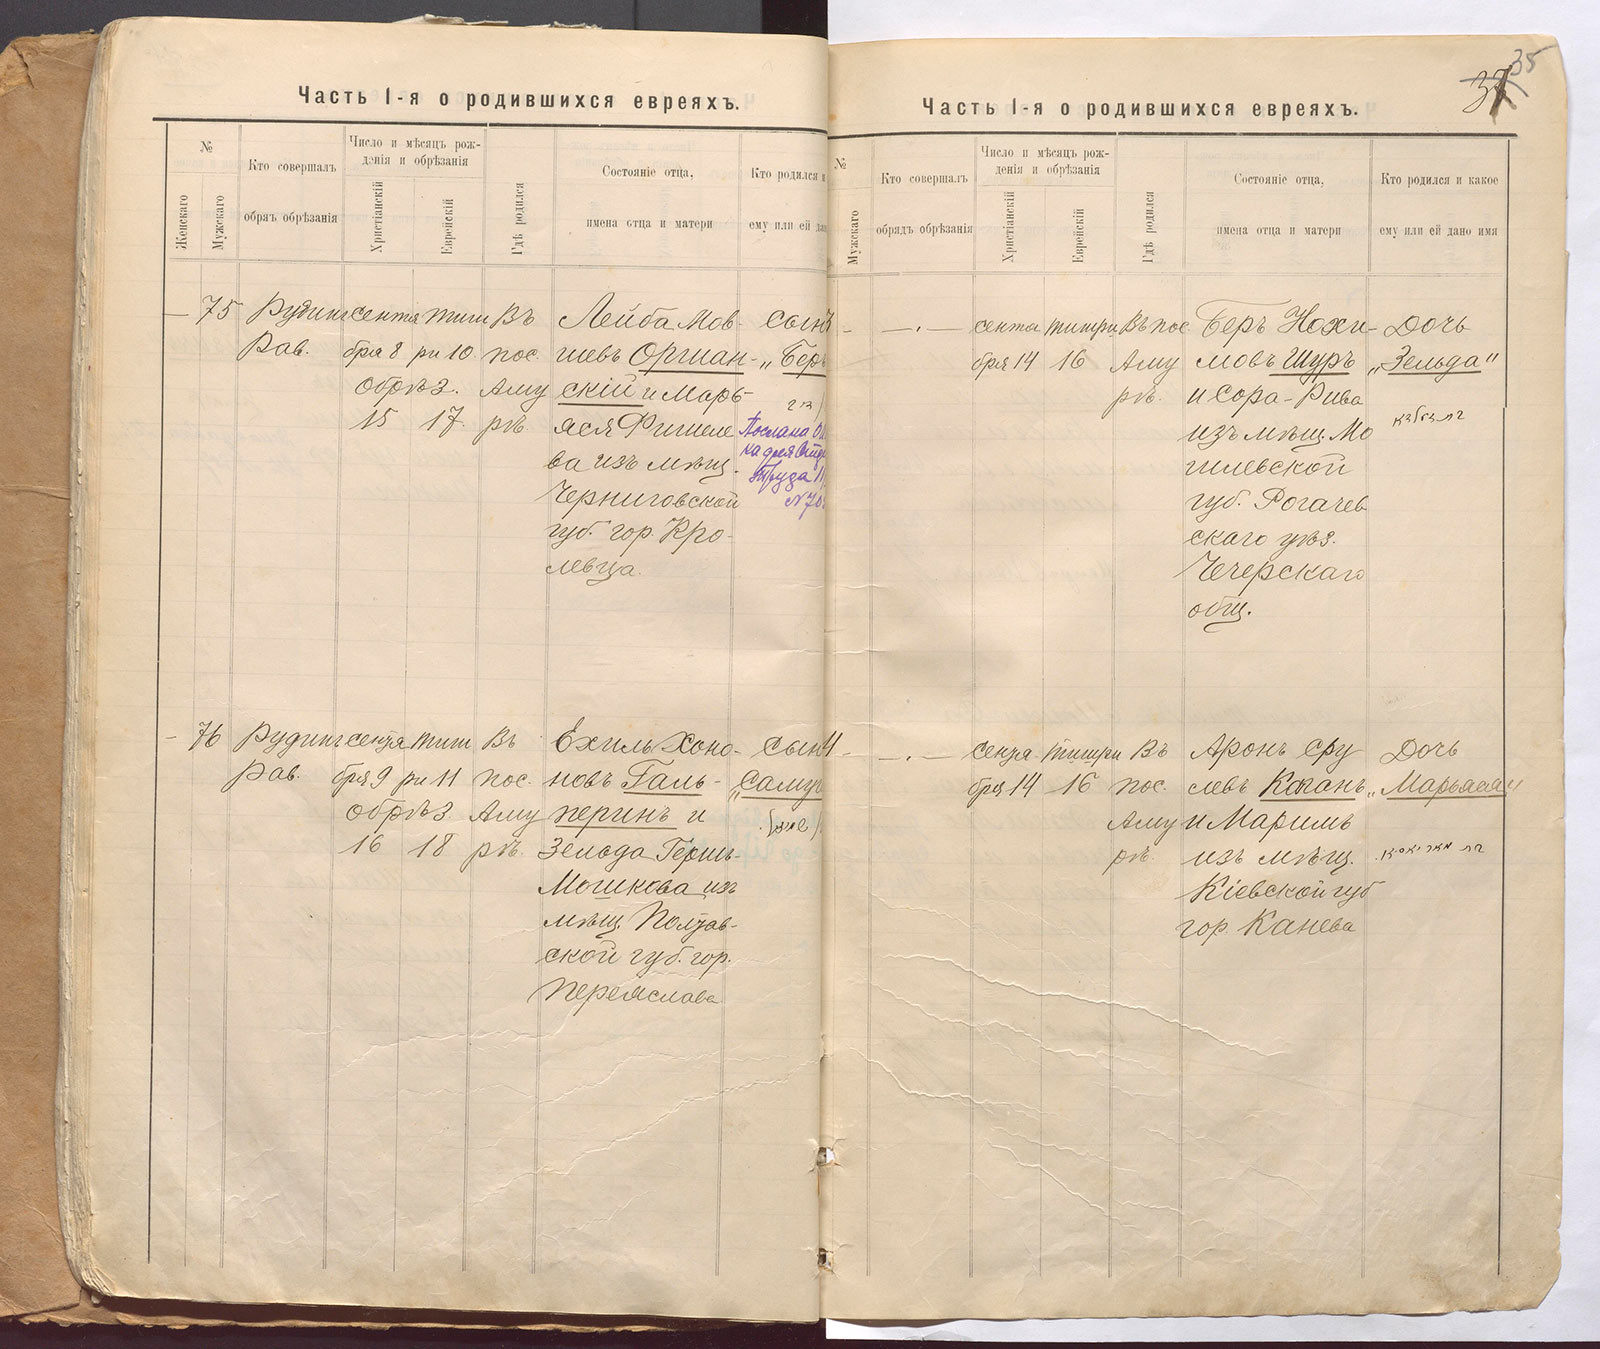 Часть I-я о родившихся евреяхъ.
№
Женскаго
Мужскаго
Кто совершалъ
обрядъ обрѣзанія
Число и мѣсяцъ рож-
денія и обрѣзанія
Христіанскій
Еврейскій
Гдѣ родился
Состояніе отца,
имена отца и матери
Кто родился и
ему или ей дан
— 75
Рудин
Рав.
сентя
бря 8
обрѣз.
15
тиш
ри 10
17.
Въ
пос.
Аму
рѣ.
Лейба Мов-
шевъ Оргиан-
скій и Марь-
яся Фишеле
ва изъ мѣщ.
Черниговской
губ. гор. Кро-
левца.
сынъ
„Беръ
Послана
Труда
№70
- 76
Рудин
Рав.
сентя
бря 9
обрѣз.
16
тиш
ри 11
18
Въ
пос.
Аму
рѣ.
Ехиль Хоно-
новъ Галь-
перинъ и
Зельда Гершь-
Мошкова изъ
мѣщ. Полтав-
ской губ. гор.
Переяслава
сынъ
„Саму
35
37
Часть I-я о родившихся евреяхъ.
№
Мужскаго
Кто совершалъ
обрядъ обрѣзанія
Число и мѣсяцъ рож-
денія и обрѣзанія
Христіанскій
Еврейскій
Гдѣ родился
Состояніе отца,
имена отца и матери
Кто родился и какое
ему или ей дано имя
— . —
сентя
бря 14
тишри
16
Въ пос
Аму
рѣ.
Беръ Нохи-
мовъ Шуръ
и Сора-Рива
изъ мѣщ. Мо
гилевской
губ. Рогачев
скаго уѣз.
Чечерскаго
общ.
Дочь
„Зельда"
— . —
сентя
бря 14
тишри
16
Въ
пос.
Аму
рѣ.
Аронъ Сру
левъ Коганъ
и Маримъ
изъ мѣщ.
Кіевской губ
гор. Канева
Дочь
„Марьяся"